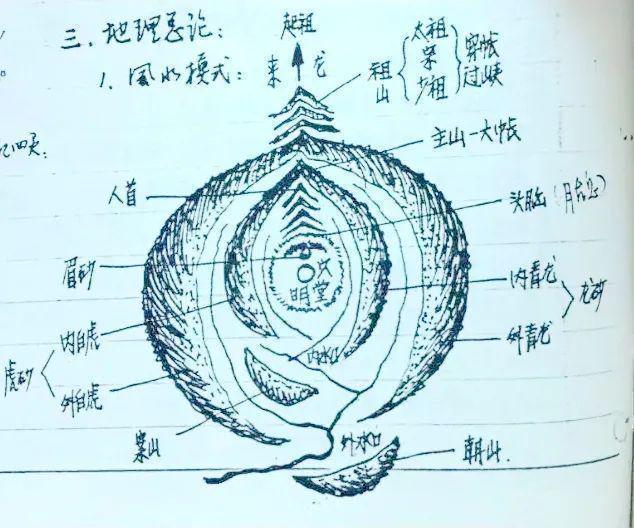 三、地理总论：
1、风水模式：
起祖
来龙
祖山
太祖
宗
少祖
穿帐
过峡
主山一大帐
人首
头脑
眉砂
穴
明堂
内青龙
外青龙
龙砂
内白虎
外白虎
虎砂
内水口
案山
外水口
朝山.